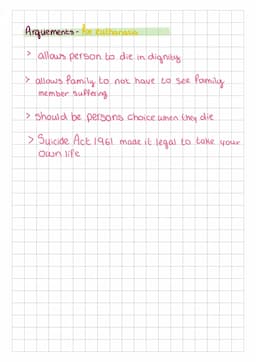 Arquements - for euthanasia
> allows person to die in dignity
> allows family to not have to see family
member suffering
> should be persons choice when they die
> Suicide Act 1961 made it legal to take your
own life